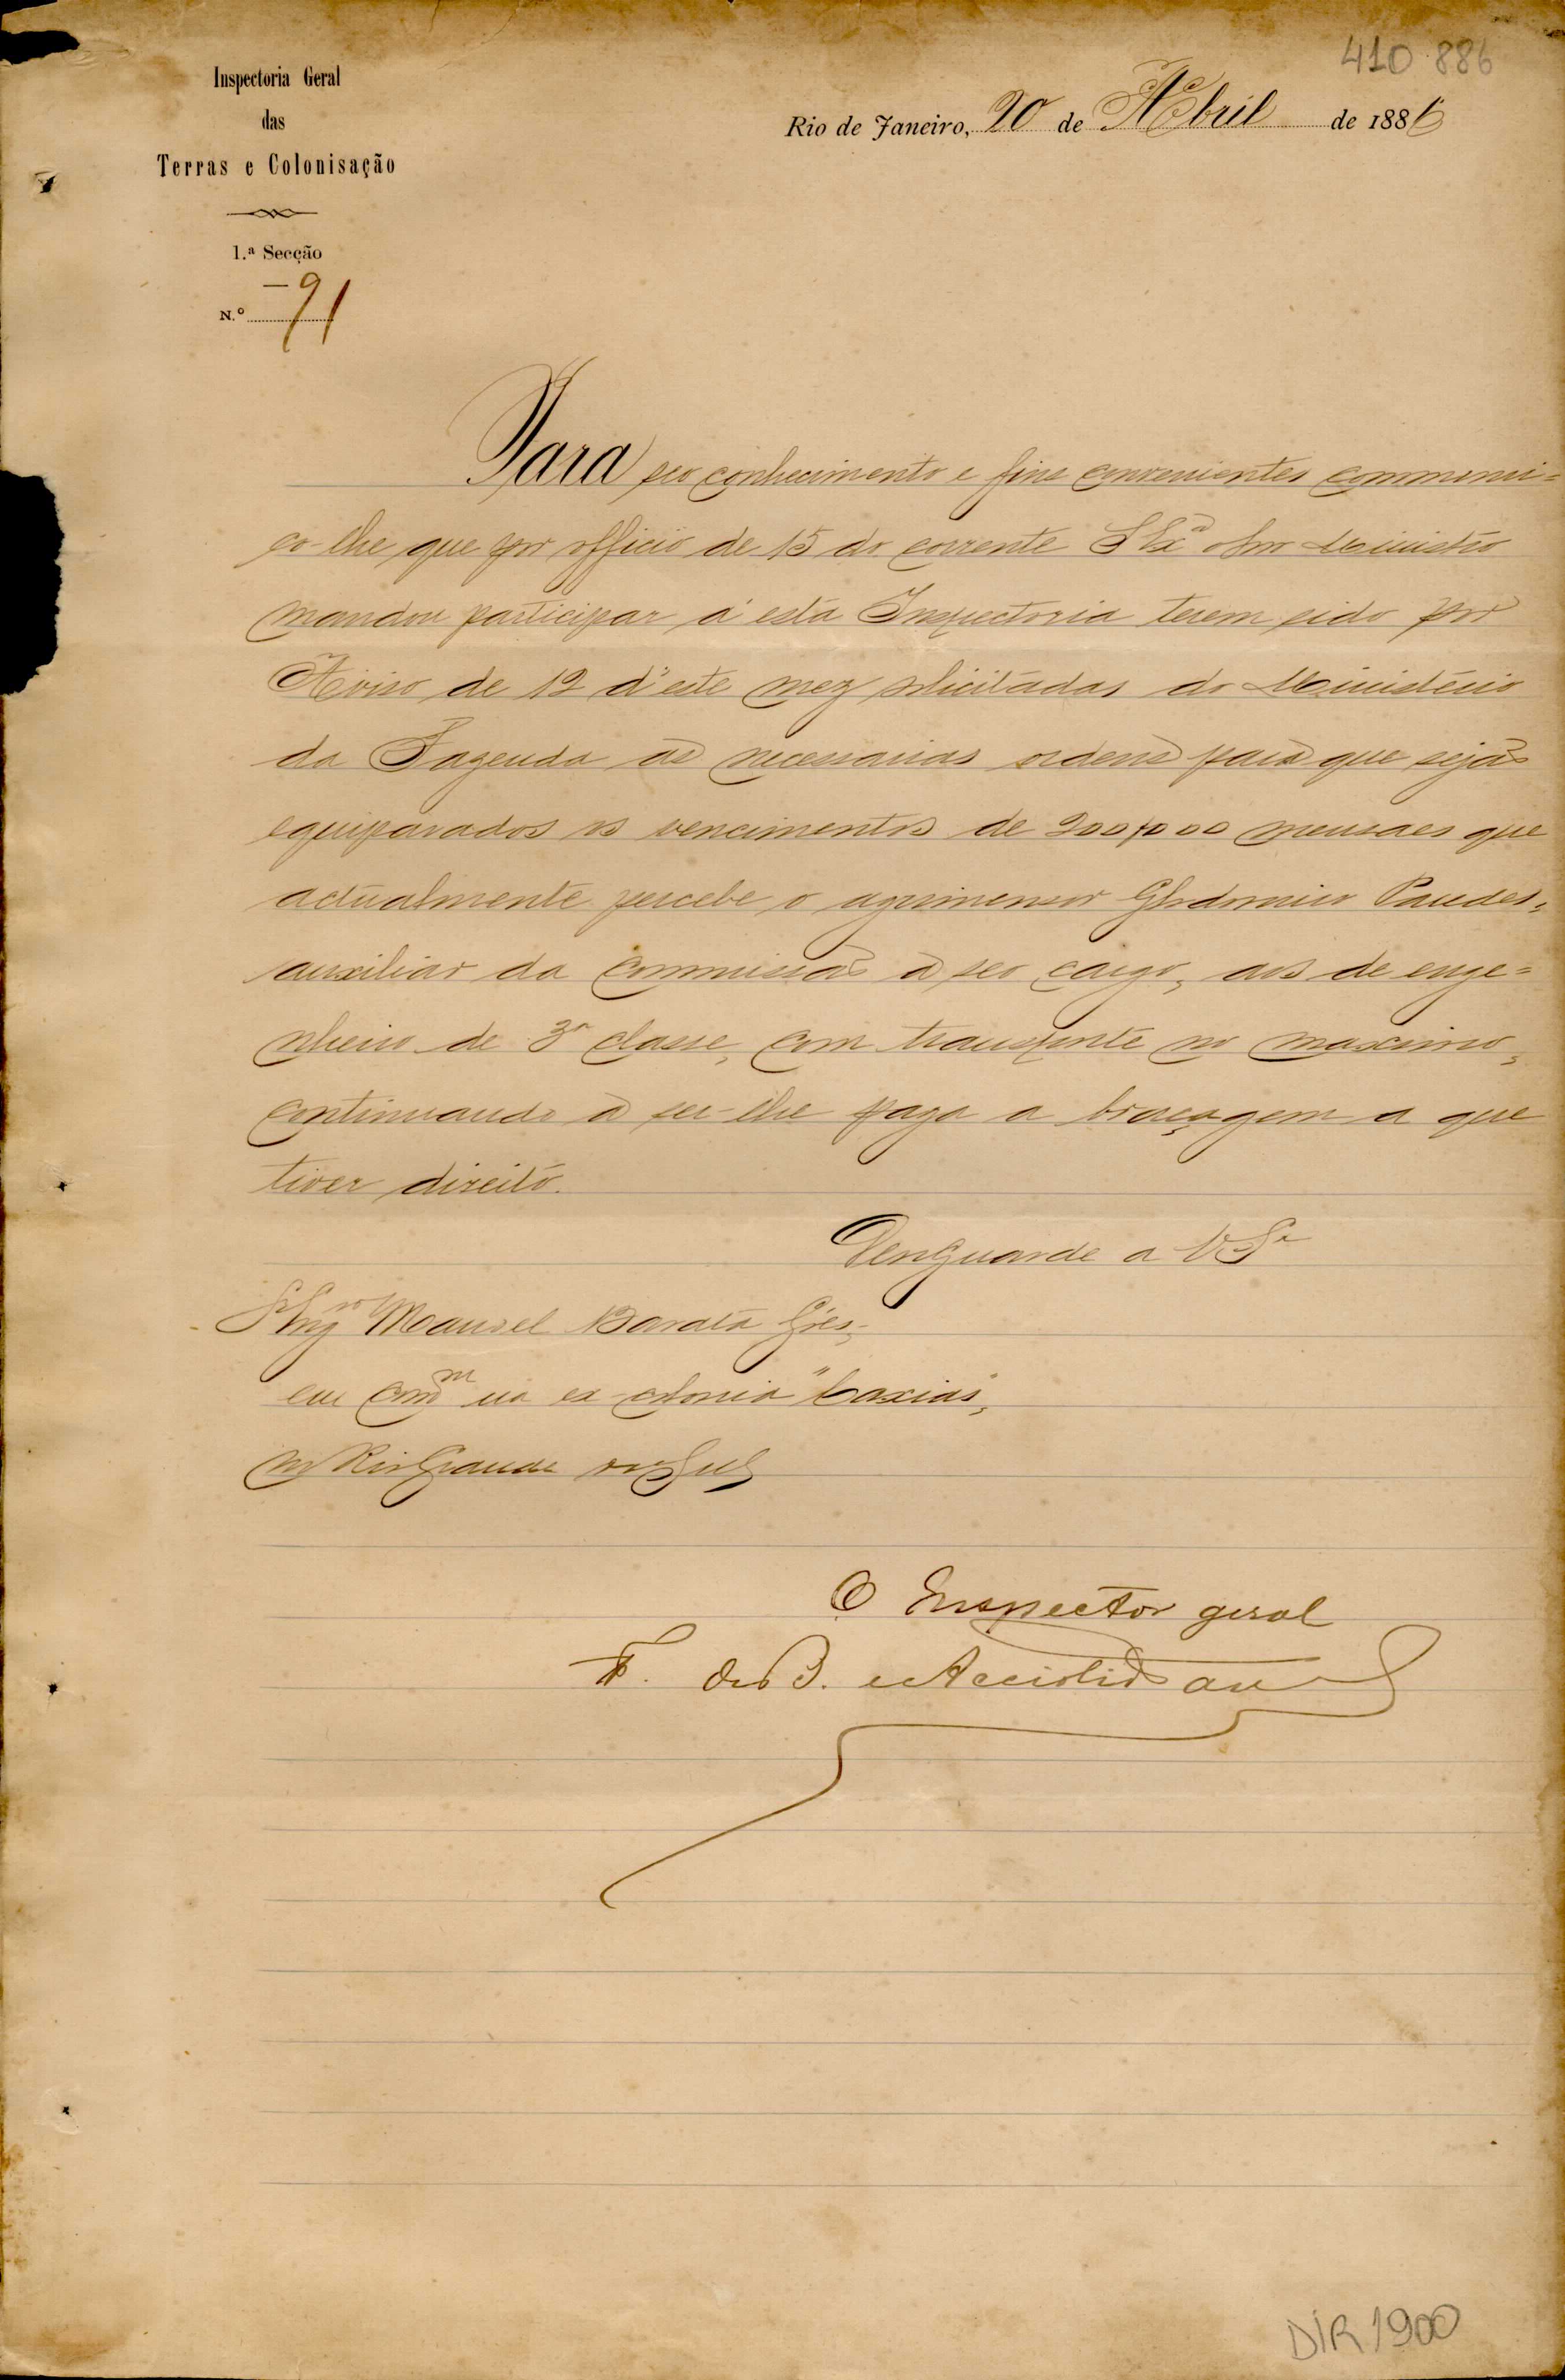 410.886
Inspectoria Geral
das
Terras e Colonisação
Rio de Janeiro, 20 de Abril de 1886
1.ª Secção
N.º 91
Para seo conhecimento e fins convenientes communi=
co-lhe que por officio de 15 do corrente S Exª o Snr Ministro
mandou participar á esta Inspectoria terem sido por
Aviso de 12 d'este mez solicitadas do Ministerio
da Fazenda as necessarias ordens para que sejão
equiparados os vencimentos de 200$000 mensaes que
actualmente percebe o agrimensor Glodomiro Paredes,
auxiliar da commissão a seo cargo, aos de enge=
nheiro de 3ª classe, com transporte no maximo,
continuando a ser-lhe paga a braçagem a que
tiver direito.
Deus Guarde a V Sª
S Engro Manoel Barata Góes,
em comm na ex-colonia "Caxias",
no Rio Grande do Sul
O Inspector geral
F. de B. e Accioli de
DIR 1900